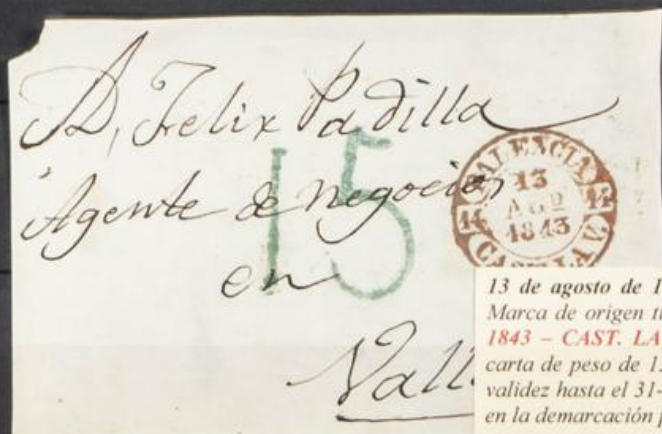 D. Felix Padilla
15
Agente de negocios
en
Vall
PALENCIA
14
13
AGO
1843
14
CAST. LA V.
13 de agosto de 1
Marca de origen ti
1843 – CAST. LA
carta de peso de 1
validez hasta el 31-
en la demarcación p